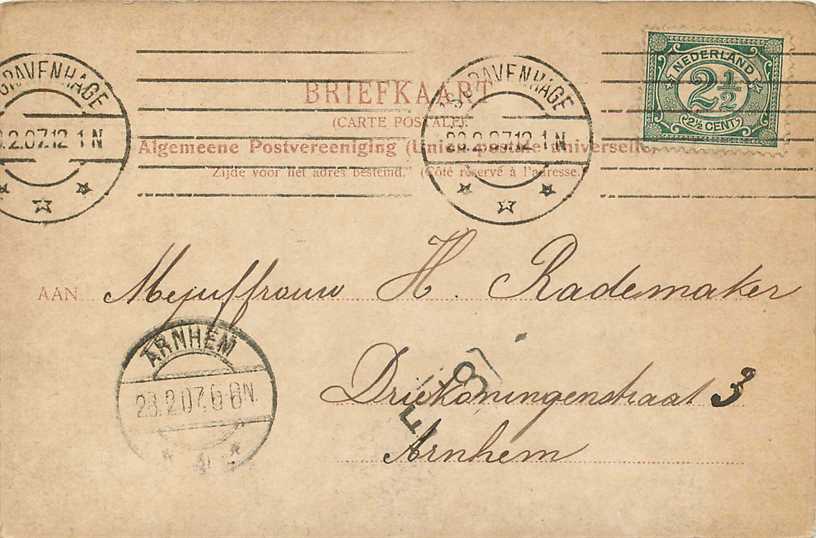 GRAVENHAGE
.2.07.12 1 N
'S GRAVENHAGE
28.2.07.12 1 N
NEDERLAND
2½
2½ CENT
BRIEFKAART
(CARTE POSTALE).
Algemeene Postvereeniging (Union postale universelle)
Zijde voor het adres bestemd. (Côté réservé à l'adresse.)
AAN Mejuffrouw H. Rademaker
ARNHEM
28.2.07. 6-8 N.
Driekoningenstraat 3
Arnhem